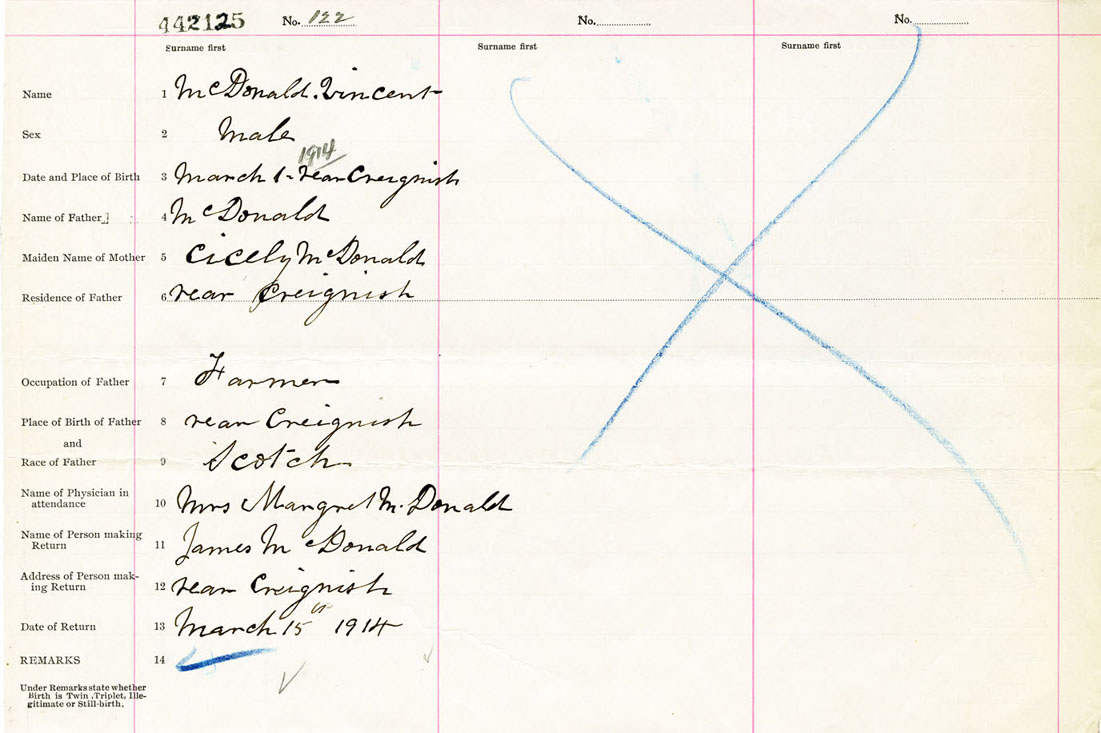 442125 No. 122 No. No.
Surname first Surname first Surname first
Name 1 McDonald. Vincent
Sex 2 Male
1914
Date and Place of Birth 3 March 1- rear Creignish
Name of Father 4 McDonald
Maiden Name of Mother 5 Cicely McDonald
Residence of Father 6 rear Creignish
Occupation of Father 7 Farmer
Place of Birth of Father 8 rear Creignish
and
Race of Father 9 Scotch
Name of Physician in
attendance 10 Mrs Margret McDonald
Name of Person making
Return 11 James McDonald
Address of Person mak-
ing Return 12 rear Creignish
Date of Return 13 March 15th 1914
REMARKS 14
Under Remarks state whether
Birth is Twin, Triplet, Ille-
gitimate or Still-birth.